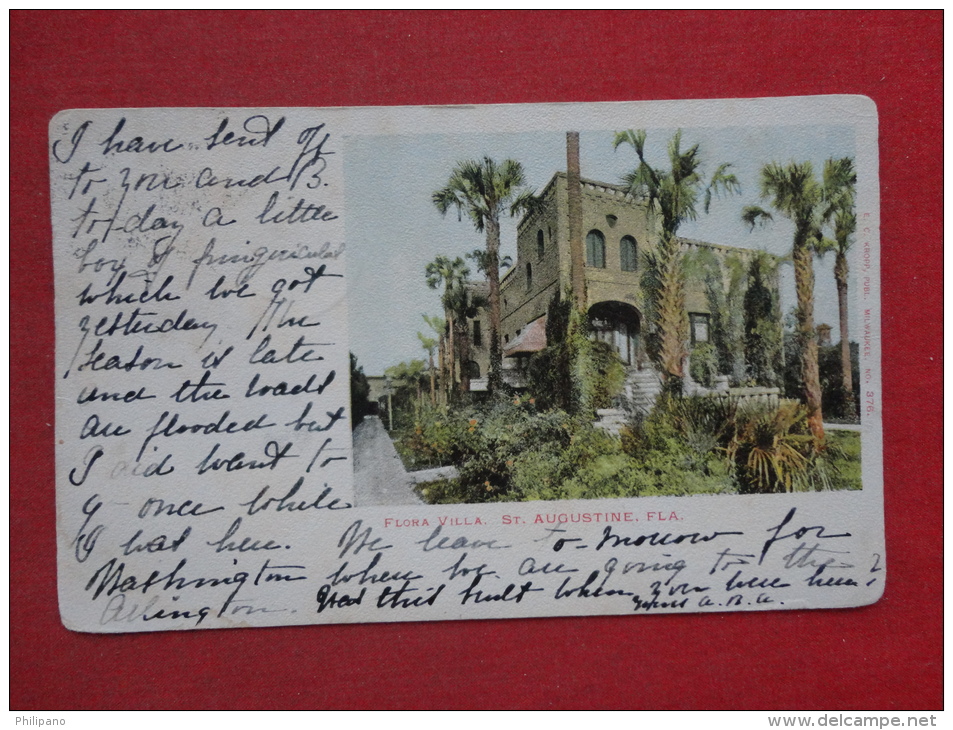 I have sent off
to you and B.
to-day a little
box of pinguicula
which we got
yesterday. The
season is late
and the roads
are flooded but
I did want to
go once while
I was here. We leave to-morrow for
Washington where we are going to the
Arlington. Was this built when you were here?
Yours A.B.A.
FLORA VILLA. ST. AUGUSTINE, FLA.
E. C. KROPP, PUBL. MILWAUKEE. NO. 376.
Philipano
www.delcampe.net